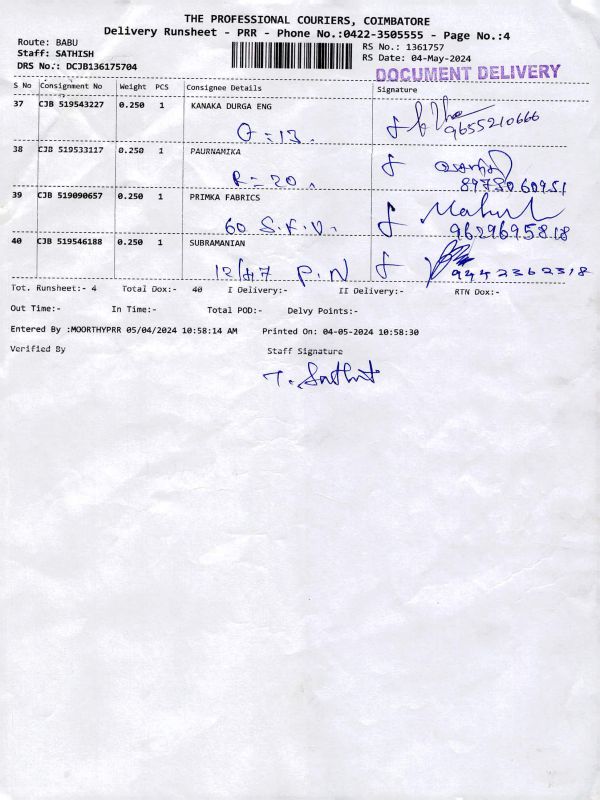 THE PROFESSIONAL COURIERS, COIMBATORE
Delivery Runsheet - PRR - Phone No.:0422-3505555 - Page No.:4
Route: BABU
RS No.: 1361757
Staff: SATHISH
RS Date: 04-May-2024
DRS No.: DCJB136175704
DOCUMENT DELIVERY
S No Consignment No Weight PCS Consignee Details Signature
37 CJB 519543227 0.250 1 KANAKA DURGA ENG
9655210666
38 CJB 519533117 0.250 1 PAURNAMIKA
R = 20
8973060951
39 CJB 519090657 0.250 1 PRIMKA FABRICS
60 S.K.V. 9629695818
40 CJB 519546188 0.250 1 SUBRAMANIAN
12/47 P.N 9442362318
Tot. Runsheet:- 4 Total Dox:- 40 I Delivery:- II Delivery:- RTN Dox:-
Out Time:- In Time:- Total POD:- Delvy Points:-
Entered By :MOORTHYPRR 05/04/2024 10:58:14 AM Printed On: 04-05-2024 10:58:30
Verified By Staff Signature